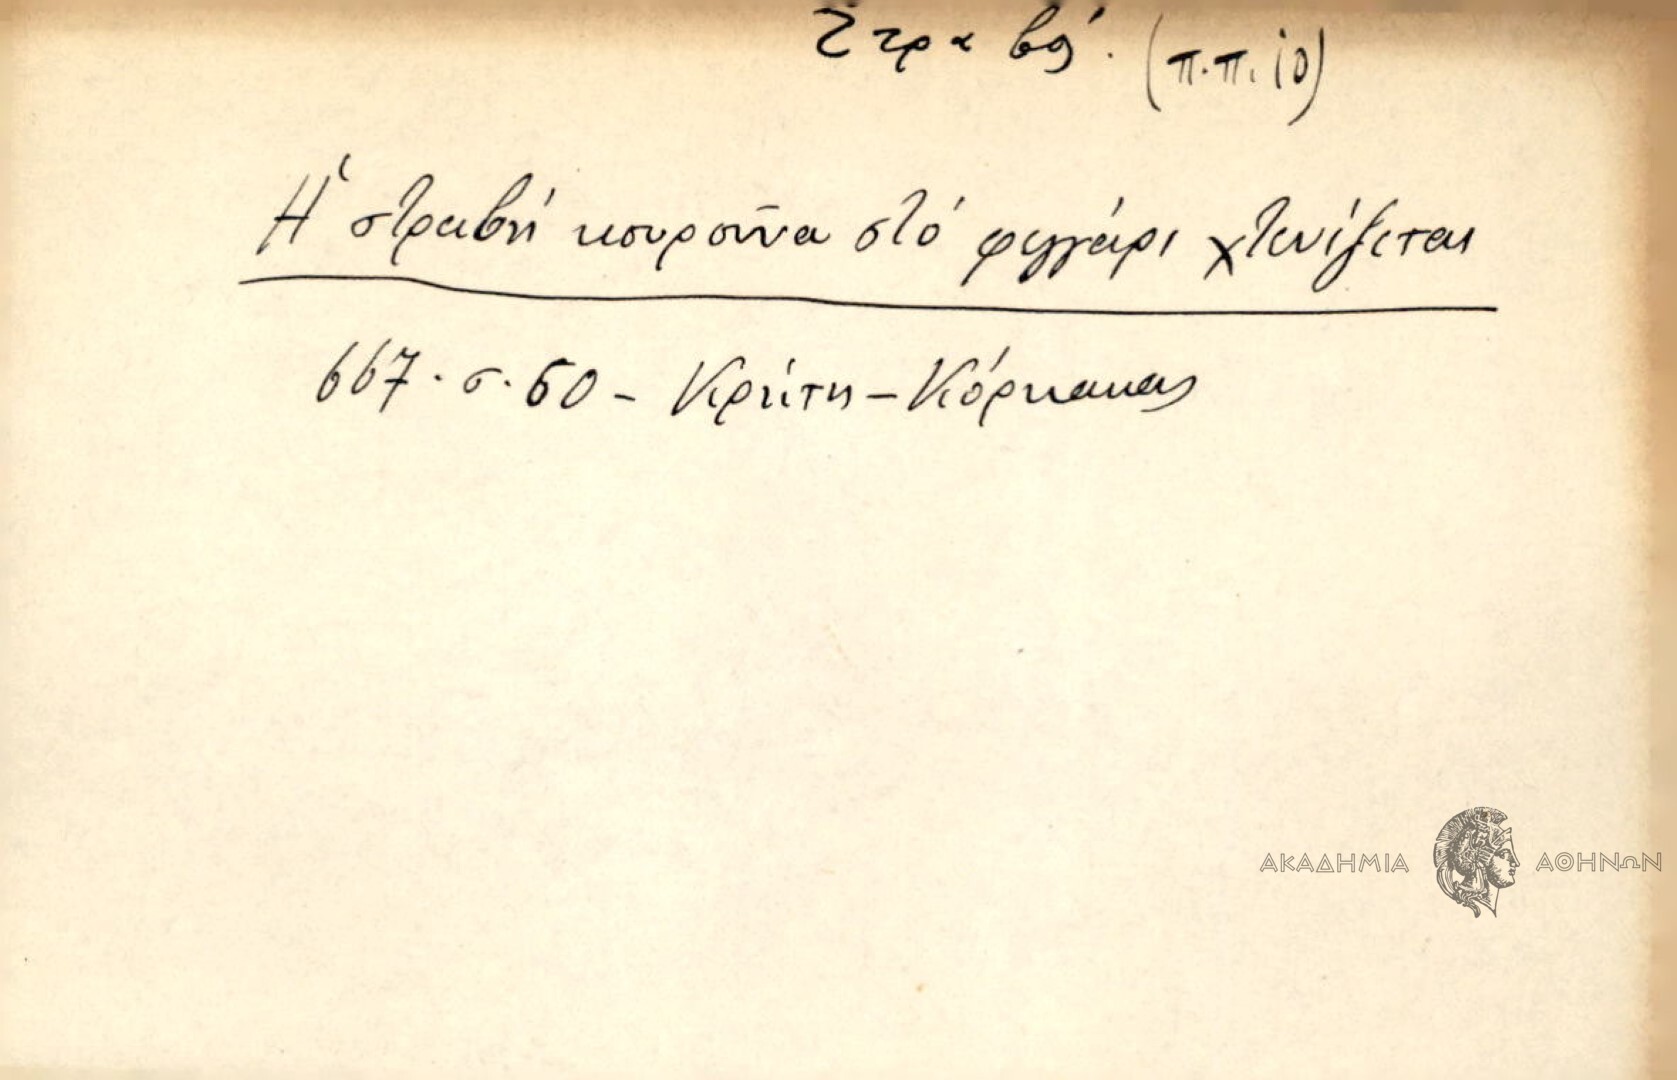 Στραβός. (π.π. 10)
Ἡ στραβή κουροῦνα στό φεγγάρι χτενίζεται
667. σ. 60 - Κρήτη - Κόρκακας
ΑΚΑΔΗΜΙΑ ΑΘΗΝΩΝ